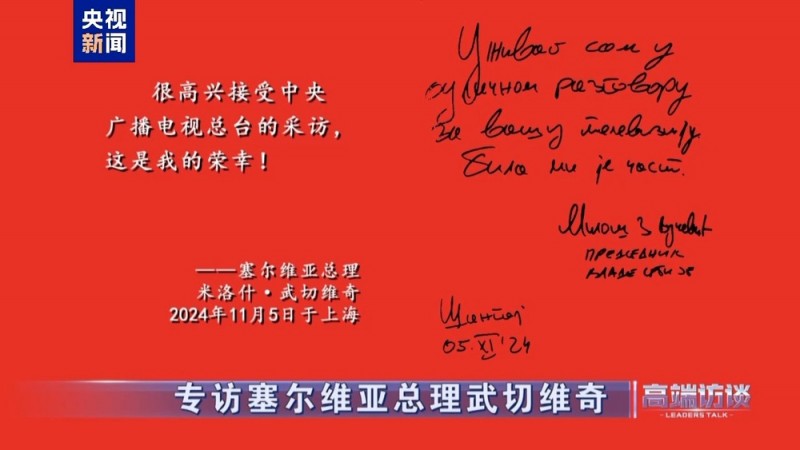 央视
新闻
很高兴接受中央
广播电视总台的采访，
这是我的荣幸！
——塞尔维亚总理
米洛什·武切维奇
2024年11月5日于上海
Уживао сам у
одличном разговору
за вашу телевизију.
Била ми је част.
Милош Вучевић
председник
владе Србије
Шангај
05. XI '24
专访塞尔维亚总理武切维奇
高端访谈
LEADERS TALK